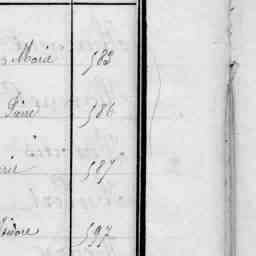 Marie 583
586
rie 587
Isidore 597